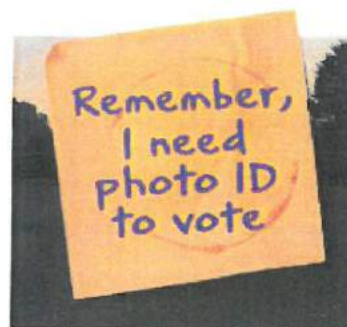 Remember,
I need
photo ID
to vote